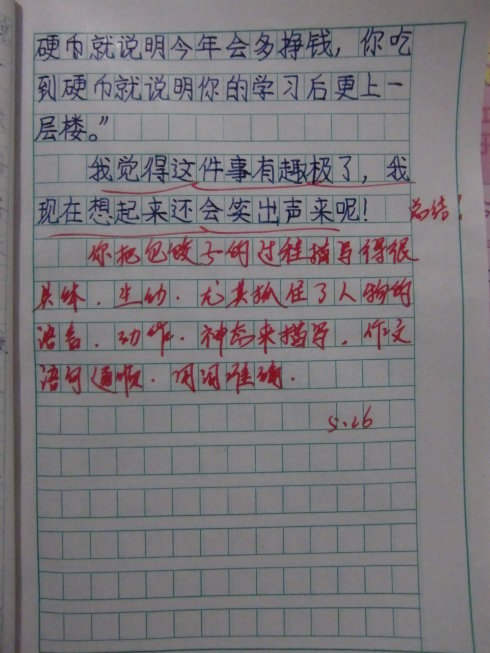 硬币就说明今年会多挣钱，你吃
到硬币就说明你的学习后更上一
层楼。”
我觉得这件事有趣极了，我
现在想起来还会笑出声来呢！
总结！
你把包饺子的过程描写得很
具体、生动，尤其抓住了人物的
语言、动作、神态来描写，作文
语句通顺，用词准确。
5.26